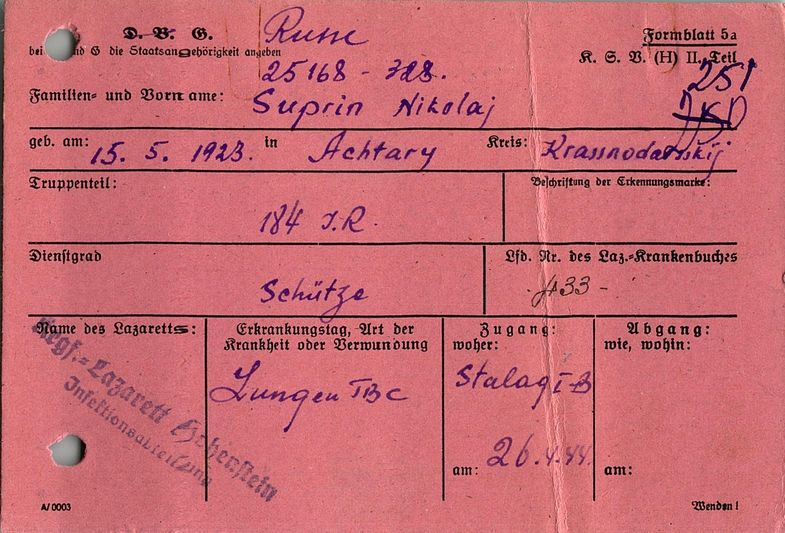 D. V. G. Russe Formblatt 5a
bei und G die Staatsangehörigkeit angeben K. S. V. (H) II. Teil
25168 - 328. 251
Familien- und Vorname: Suprin Nikolaj
geb. am: 15. 5. 1923. in Achtary Kreis: Krassnodarskij
Truppenteil: Beschriftung der Erkennungsmarke:
184 I.R.
Dienstgrad Lfd. Nr. des Laz.-Krankenbuches
Schütze 433 -
Name des Lazaretts: Erkrankungstag, Art der Zugang: Abgang:
Krankheit oder Verwundung woher: wie, wohin:
Krgf.-Lazarett Hohenstein
Infektionsabteilung
Lungen TBC Stalag I-B
am: 26.4.44. am:
A/0003 Wenden!